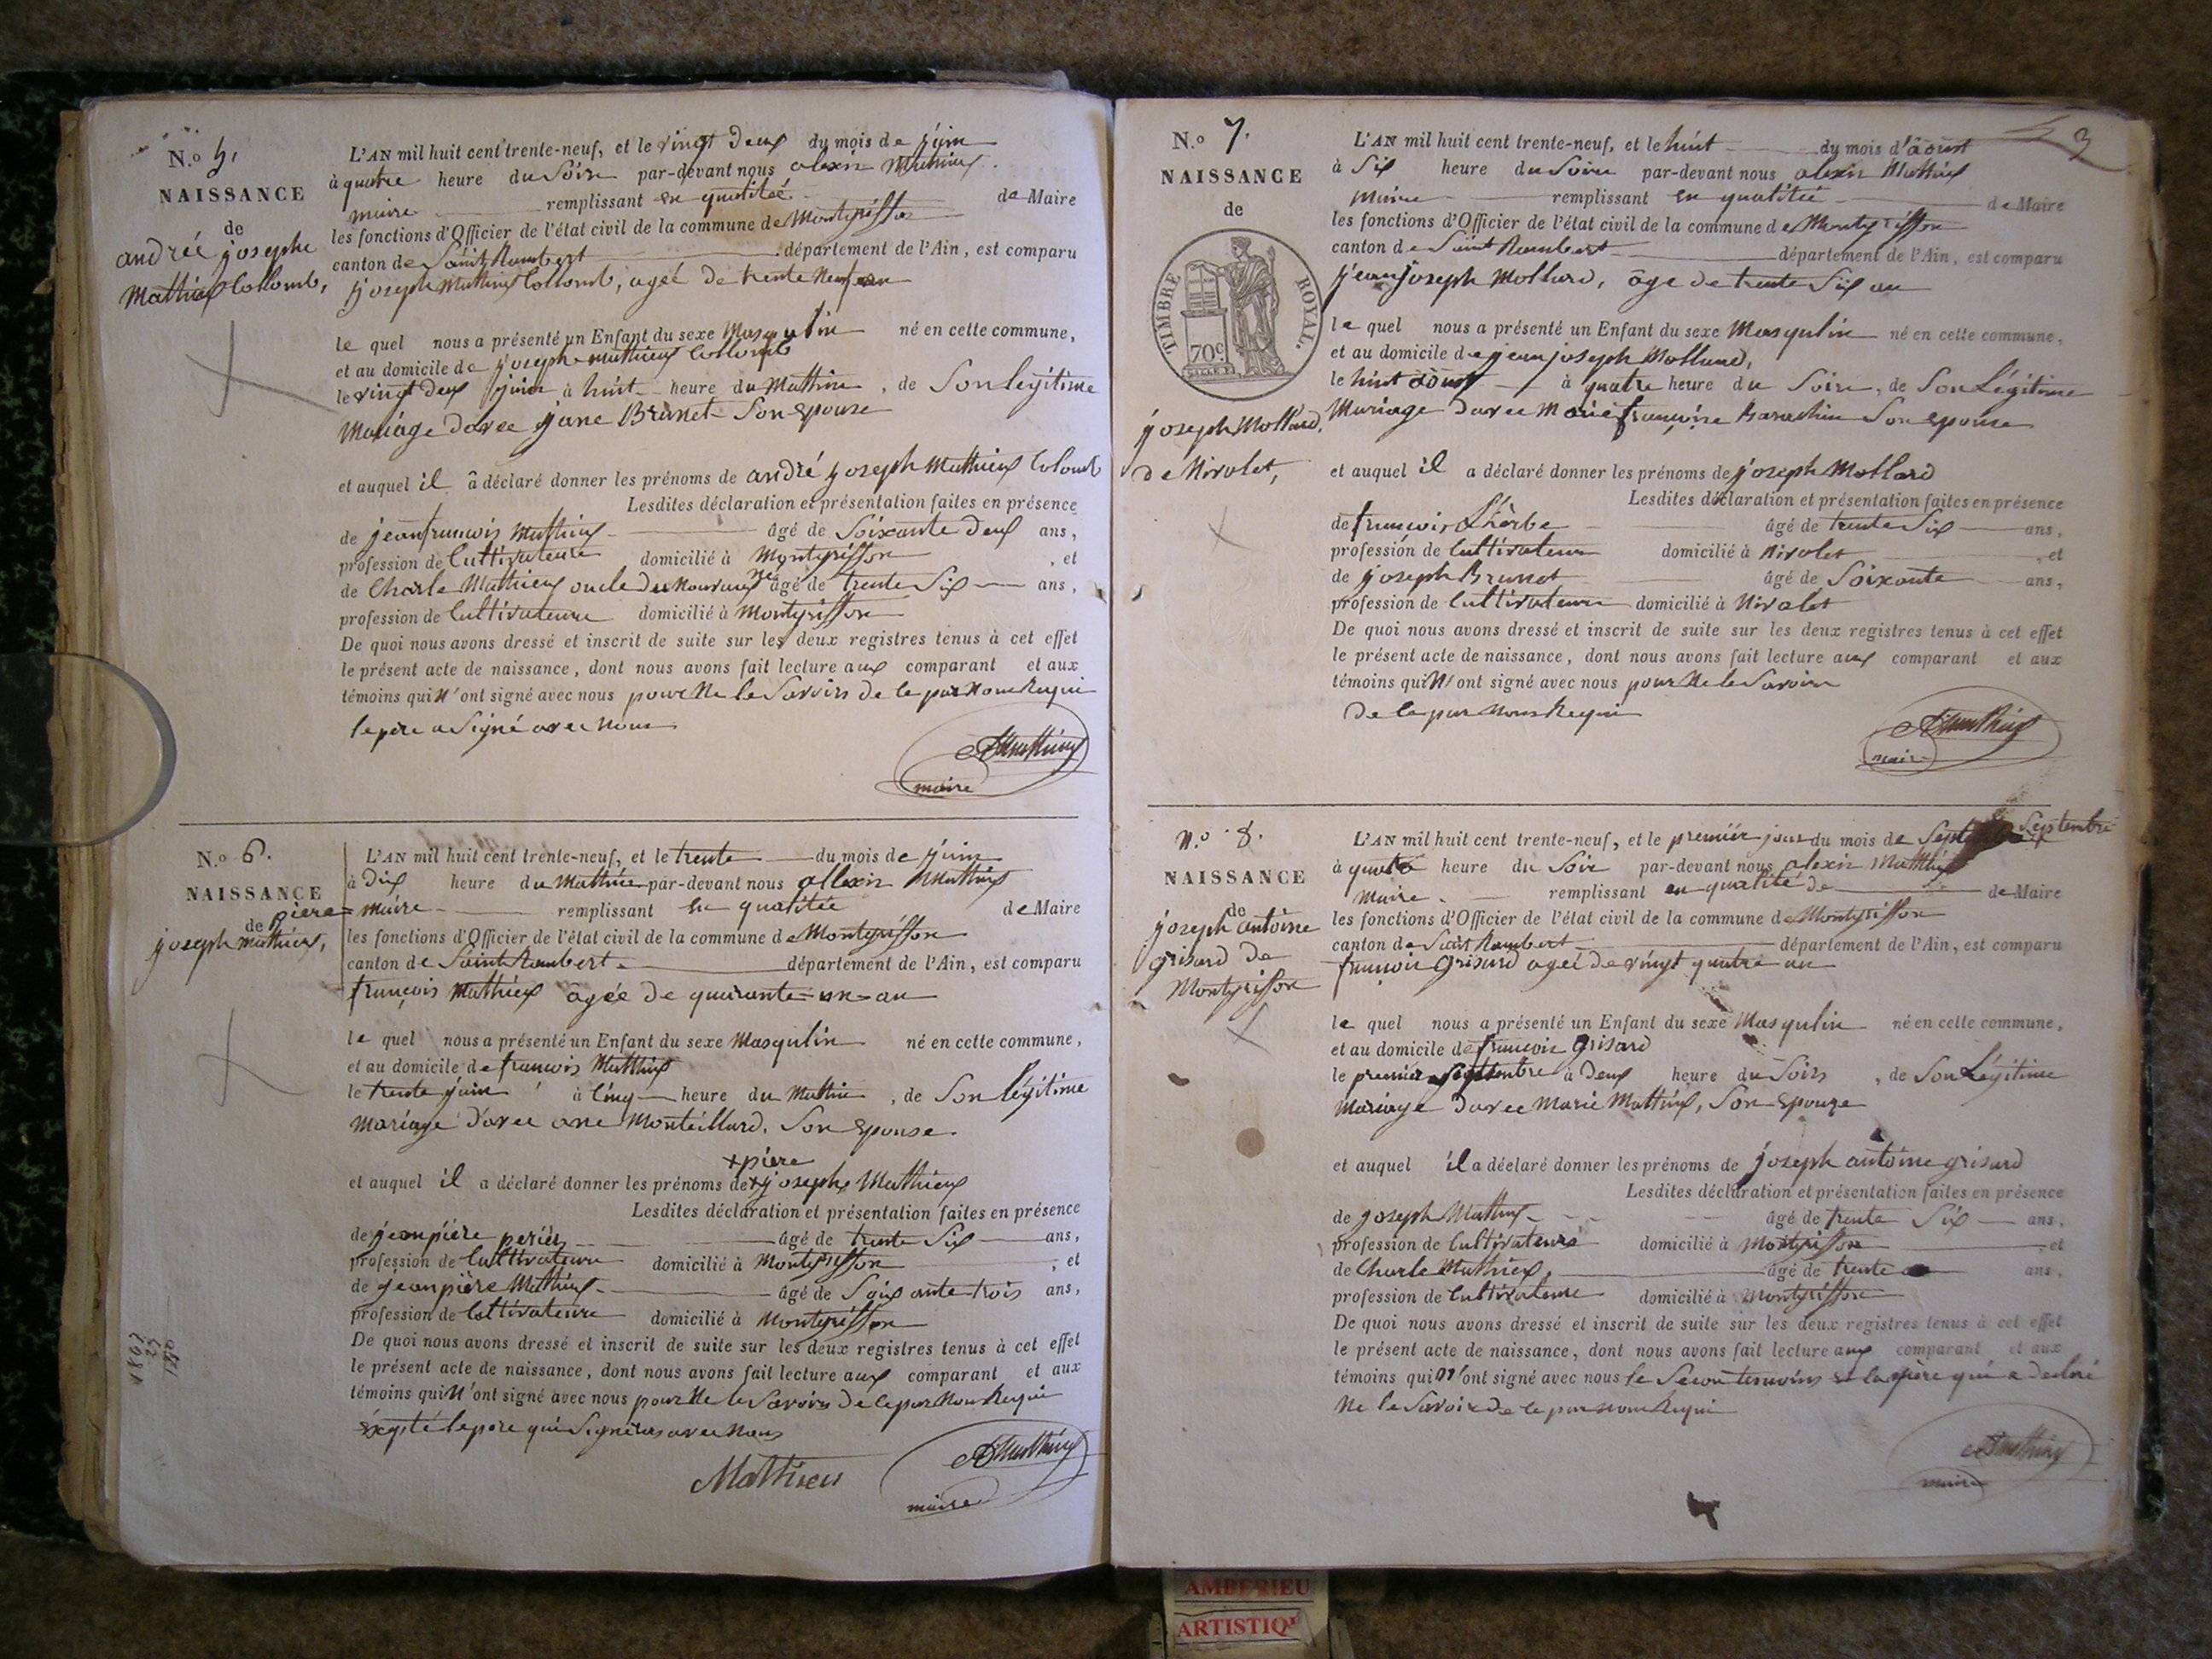 N.o 5.
NAISSANCE
de
andrée josephe
Mathieux Collomb,
L'AN mil huit cent trente-neuf, et le vingt deux du mois de juin
à quatre heure du Soire par-devant nous alexin Mathieux
maire remplissant en qualiteé de Maire
les fonctions d'Officier de l'état civil de la commune de Montgriffon
canton de Saint Rambert département de l'Ain, est comparu
joseph Mathieux Collomb, ageé de trente neuf an
le quel nous a présenté un Enfant du sexe Masqulin né en cette commune,
et au domicile de joseph mathieux Collomb
le vingt deux juin à huit heure du Mattine, de Son légitime
Mariage davec jane Brunet Son Epouse
et auquel il â déclaré donner les prénoms de andré joseph Mathieux Colomb
Lesdites déclaration et présentation faites en présence
de jeanfrancois Mathieux âgé de Soixante deux ans,
profession de Cultivateure domicilié à Montgriffon, et
de Charle Mathieux oncle du Nouveau né âgé de trente Six ans,
profession de Cultivateure domicilié à Montgriffon
De quoi nous avons dressé et inscrit de suite sur les deux registres tenus à cet effet
le présent acte de naissance, dont nous avons fait lecture aux comparant et aux
témoins qui N'ont signé avec nous pour Ne le Savoirs de le par Nous Requi
le père a Signé avec Nous
AMathieux
maire
N.o 6.
NAISSANCE
de piere
joseph mathieux,
L'AN mil huit cent trente-neuf, et le trente du mois de juin
à dix heure du Mathine par-devant nous allexin Mathieux
maire remplissant en qualitée de Maire
les fonctions d'Officier de l'état civil de la commune de Montgriffon
canton de Saint Rambert département de l'Ain, est comparu
françois Mathieux âgée de quarante-un-an
le quel nous a présenté un Enfant du sexe Masqulin né en cette commune,
et au domicile de francois Mathieux
le trente juin à Cinq heure du Mathin, de Son légitime
Mariage d'avec ane Monteillard. Son Epouse
+piere
et auquel il a déclaré donner les prénoms de + josephe Mathieux
Lesdites déclaration et présentation faites en présence
de jeanpière periér âgé de trente Six ans,
profession de Culttivateure domicilié à Montgriffon, et
de jeanpière Mathieux âgé de Soixante trois ans,
profession de Coltivateure domicilié à Montgriffon
De quoi nous avons dressé et inscrit de suite sur les deux registres tenus à cet effet
le présent acte de naissance, dont nous avons fait lecture aux comparant et aux
témoins qui N'ont signé avec nous pour Ne le Savoirs de le par Nous Requi
le père qui Signéras avec Nous
Mathieu
AMathieux
maire
N.o 7.
NAISSANCE
de
TIMBRE ROYAL.
70c
joseph Mollard,
de Nivolet,
3
L'AN mil huit cent trente-neuf, et le huit du mois d'âoust
à Six heure du Soire par-devant nous alexin Mathieux
Maire remplissant en qualitée de Maire
les fonctions d'Officier de l'état civil de la commune de Montgriffon
canton de Saint Rambert département de l'Ain, est comparu
jean joseph Mollard, âge de trente Six an
le quel nous a présenté un Enfant du sexe Masqulin né en cette commune,
et au domicile de jean joseph Mollard,
le huit âoust à quatre heure du Soire, de Son Légitime
Mariage davec Marie françoise Son Epouse
et auquel il a déclaré donner les prénoms de joseph Mollard
Lesdites déclaration et présentation faites en présence
de francois Lhèrbe âgé de trente Six ans,
profession de Cultivateure domicilié à Nivolet, et
de joseph Brunet âgé de Soixante ans,
profession de Cultivateure domicilié à Nivolet
De quoi nous avons dressé et inscrit de suite sur les deux registres tenus à cet effet
le présent acte de naissance, dont nous avons fait lecture aux comparant et aux
témoins qui N'ont signé avec nous pour Ne le Savoire
de le par Nous Requi
AMathieux
maire
N.o 8.
NAISSANCE
de
joseph antoine
grisard de
Montgriffon
L'AN mil huit cent trente-neuf, et le premiér jour du mois de Septembre
à quatre heure du Soir par-devant nous alexin Matthieux
Maire remplissant en qualité de de Maire
les fonctions d'Officier de l'état civil de la commune de Montgriffon
canton de Saint Rambert département de l'Ain, est comparu
françois Grisard ageé de vingt quatre an
le quel nous a présenté un Enfant du sexe Masqulin né en cette commune,
et au domicile de francois Grisard
le premiér Septtenbre à deux heure du Soirs, de Son Légitime
Mariage davec Marie Mathieux, Son Epouze
et auquel il a déclaré donner les prénoms de joseph antoine grisard
Lesdites déclaration et présentation faites en présence
de joseph Mathieux âgé de trente Six ans,
profession de Cultivateure domicilié à Montgriffon, et
de Charle Mathieux, âgé de trente ans,
profession de Cultivateure domicilié à Montgriffon
De quoi nous avons dressé et inscrit de suite sur les deux registres tenus à cet effet
le présent acte de naissance, dont nous avons fait lecture aux comparant et aux
témoins qui N'ont signé avec nous le Secon temoins le père qui a declaré
Ne le Savoir de le par nous Requi
AMathieux
maire
AMBERIEU
ARTISTIQ